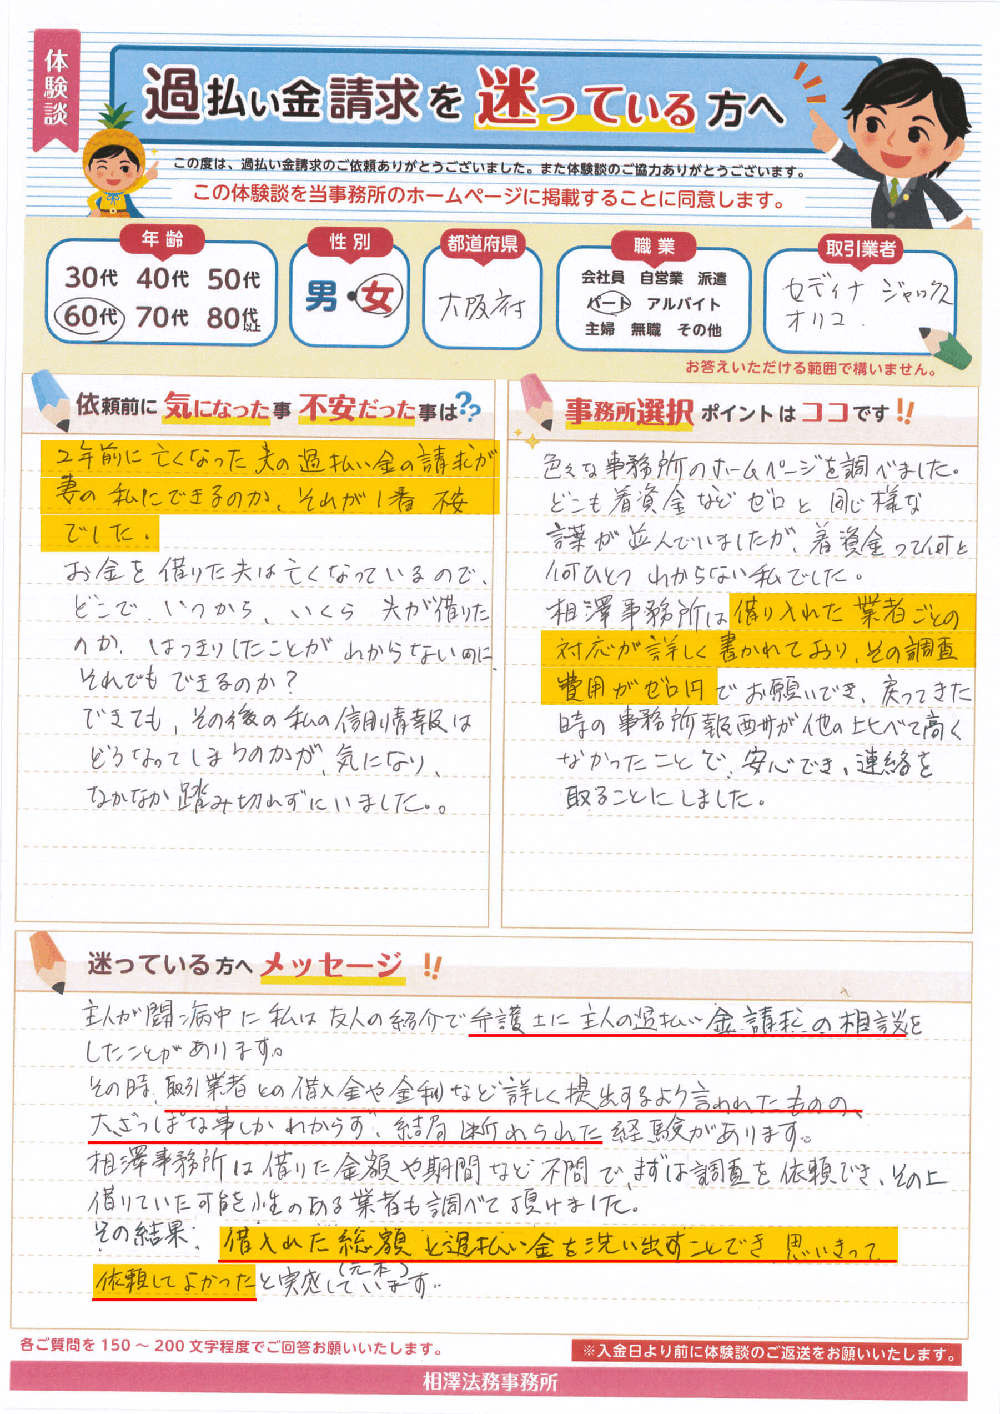 体験談
過払い金請求を迷っている方へ
この度は、過払い金請求のご依頼ありがとうございました。また体験談のご協力ありがとうございます。
この体験談を当事務所のホームページに掲載することに同意します。
年齢
30代 40代 50代
60代 70代 80代以上
性別
男・女
都道府県
大阪府
職業
会社員 自営業 派遣
パート アルバイト
主婦 無職 その他
取引業者
セディナ ジャックス
オリコ.
お答えいただける範囲で構いません。
依頼前に気になった事 不安だった事は??
2年前に亡くなった夫の過払い金の請求が
妻の私にできるのか、それが1番 不安
でした。
お金を借りた夫は亡くなっているので、
どこで、いつから、いくら 夫が借りた
のか、はっきりしたことがわからないのに
それでもできるのか?
できても、その後の私の信用情報は
どうなってしまうのかが、気になり、
なかなか踏み切れずにいました。
事務所選択ポイントはココです!!
色々な事務所のホームページを調べました。
どこも着資金などゼロと同じ様な
言葉が並んでいましたが、着資金って何と
何ひとつわからない私でした。
相澤事務所は借り入れた業者ごとの
対応が詳しく書かれており、その調査
費用がゼロ円でお願いでき、戻ってきた
時の事務所報酬が他の比べて高く
なかったことで、安心でき、連絡を
取ることにしました。
迷っている方へメッセージ!!
主人が闘病中に私は友人の紹介で弁護士に主人の過払い金請求の相談を
したことがあります。
その時、取引業者との借入金や金利など詳しく提出するよう言われたものの、
大ざっぱな事しかわからず、結局断わられた経験があります。
相澤事務所は借りた金額や期間など不問で、まずは調査を依頼でき、その上
借りていた可能性のある業者も調べて頂けました。
その結果、借入れた総額と過払い金を洗い出すことでき 思いきって
(元本)
依頼してよかったと実感しています。
各ご質問を150〜200文字程度でご回答お願いいたします。
※入金日より前に体験談のご返送をお願いいたします。
相澤法務事務所